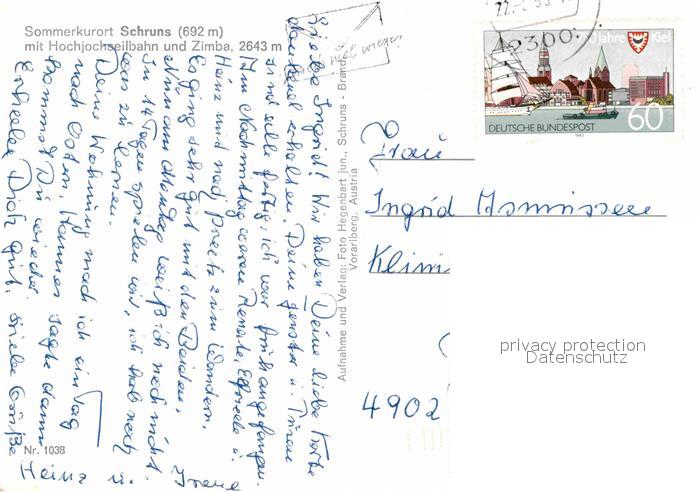 Sommerkurort Schruns (692 m)
mit Hochjochseilbahn und Zimba, 2643 m
Liebe Ingrid! Wir haben Deine liebe Karte
erhalten. Deine Fenster u. Türen
sind alle fertig, ich war
Am Nachmittag waren Renate, u.
Heinz und noch zum Wandern.
Es ging sehr gut mit den Beiden,
weiß ich noch nicht.
In 14 Tagen spielen wir, ich hab noch
was zu lernen.
Deine Wohnung mach ich ein Tag
nach Ostern, Hannes sagte dann
kommst Du wieder.
Erhole Dich gut. Liebe Grüße
Heinz u. Irene
Nr. 1038
Aufnahme und Verlag: Foto Hegenbart jun., Schruns - Brand,
Vorarlberg, Austria
2300
Jahre Kiel
DEUTSCHE BUNDESPOST
60
1992
Frau
Ingrid Asmussen
4902
privacy protection
Datenschutz